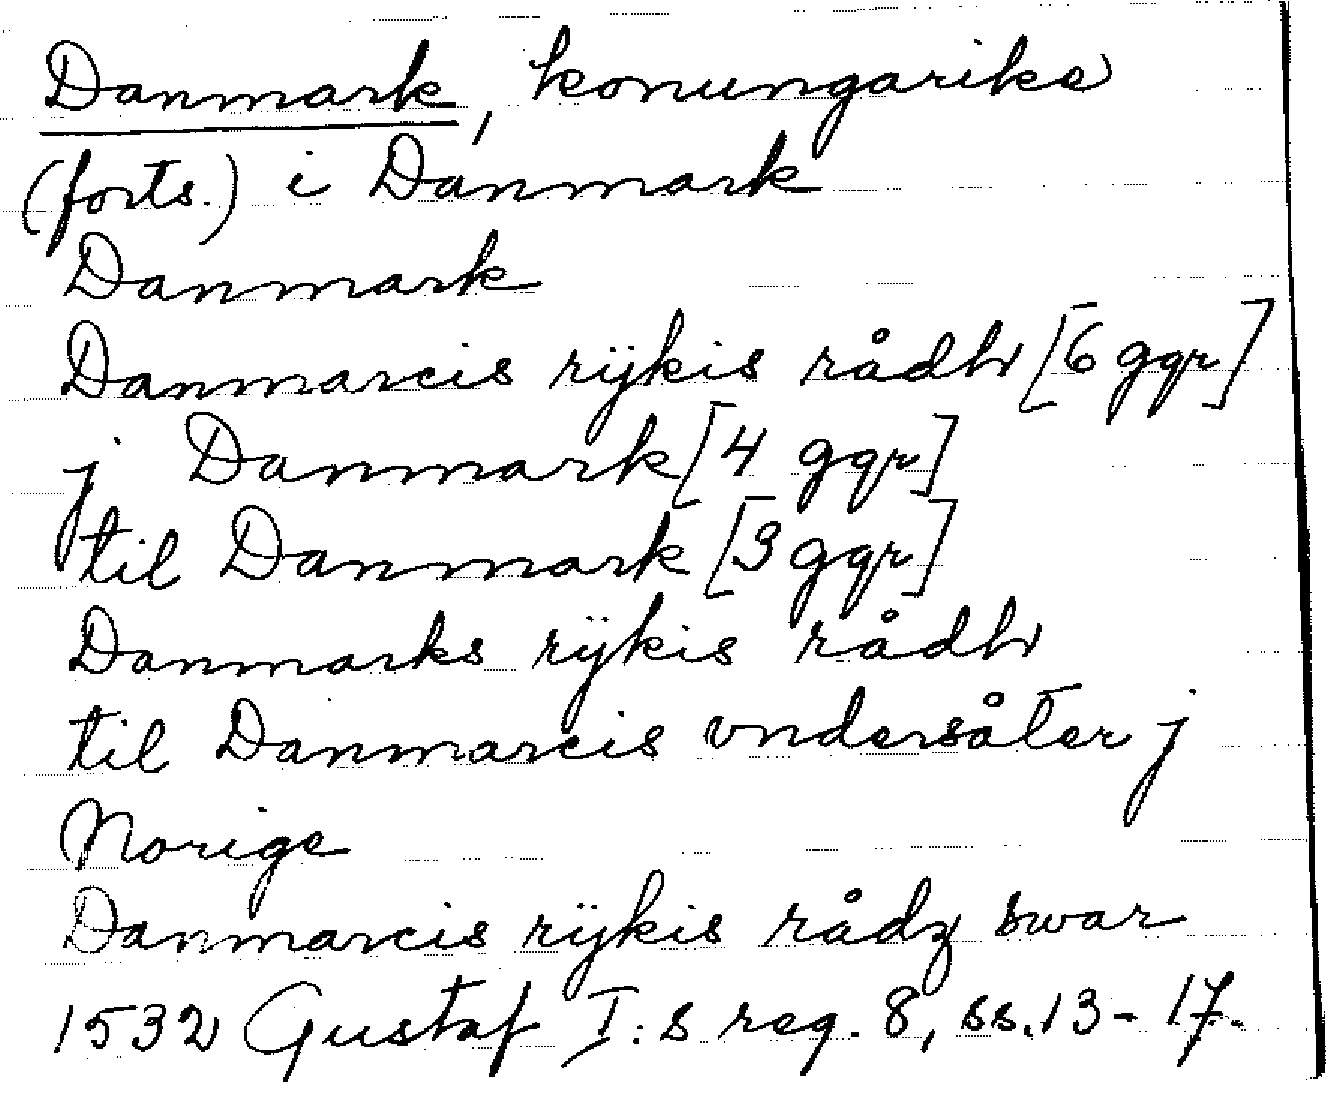 Danmark, konungarike
(forts.) i Danmark
Danmark
Danmarcis rÿkis rådh [6 ggr]
j Danmark [4 ggr]
til Danmark [3 ggr]
Danmarks rÿkis rådh
til Danmarcis vndersåter j
Norige
Danmarcis rÿkis rådz swar
1532 Gustaf I:s reg. 8, ss. 13-17.